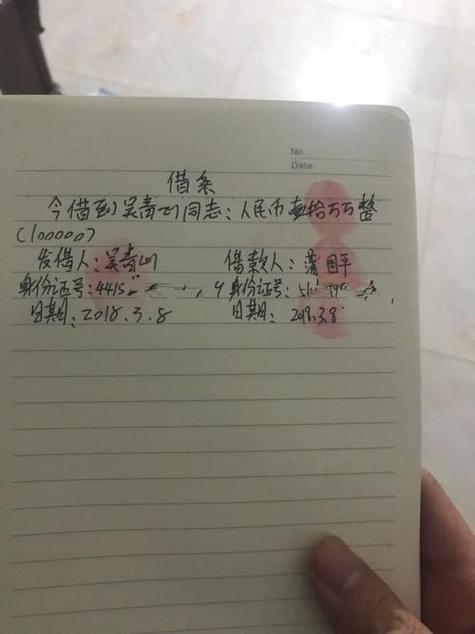 No.
Date
借条
今借到吴青山同志:人民币壹拾万万整
(100000)
发借人:吴青山 借款人:蒲国平
身份证号:4415 身份证号:
日期:2018.3.8 日期:2018.3.8